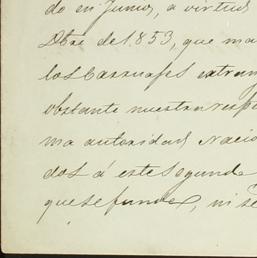 do en Junio, a virtud
Obre de 1853, que ma
los Carruajes estran
obstante nuestra resp
ma autoridad Nacio
dos á este segundo
que se funde, ni se